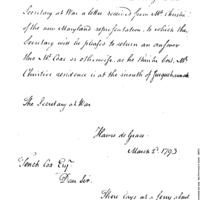 Secretary at War a letter received from Mr. Christie
of the new Maryland representation, to which the
Secretary will be pleased to return an answer
thro' Mr. Coxe or otherwise, as he thinks best. Mr.
Christie's residence is at the mouth of Susquehannah
The Secretary at War
Havre de Grace
March 2d. 1793
Tench Cox Esqr.
Dear Sir.
Three days at a ferry about